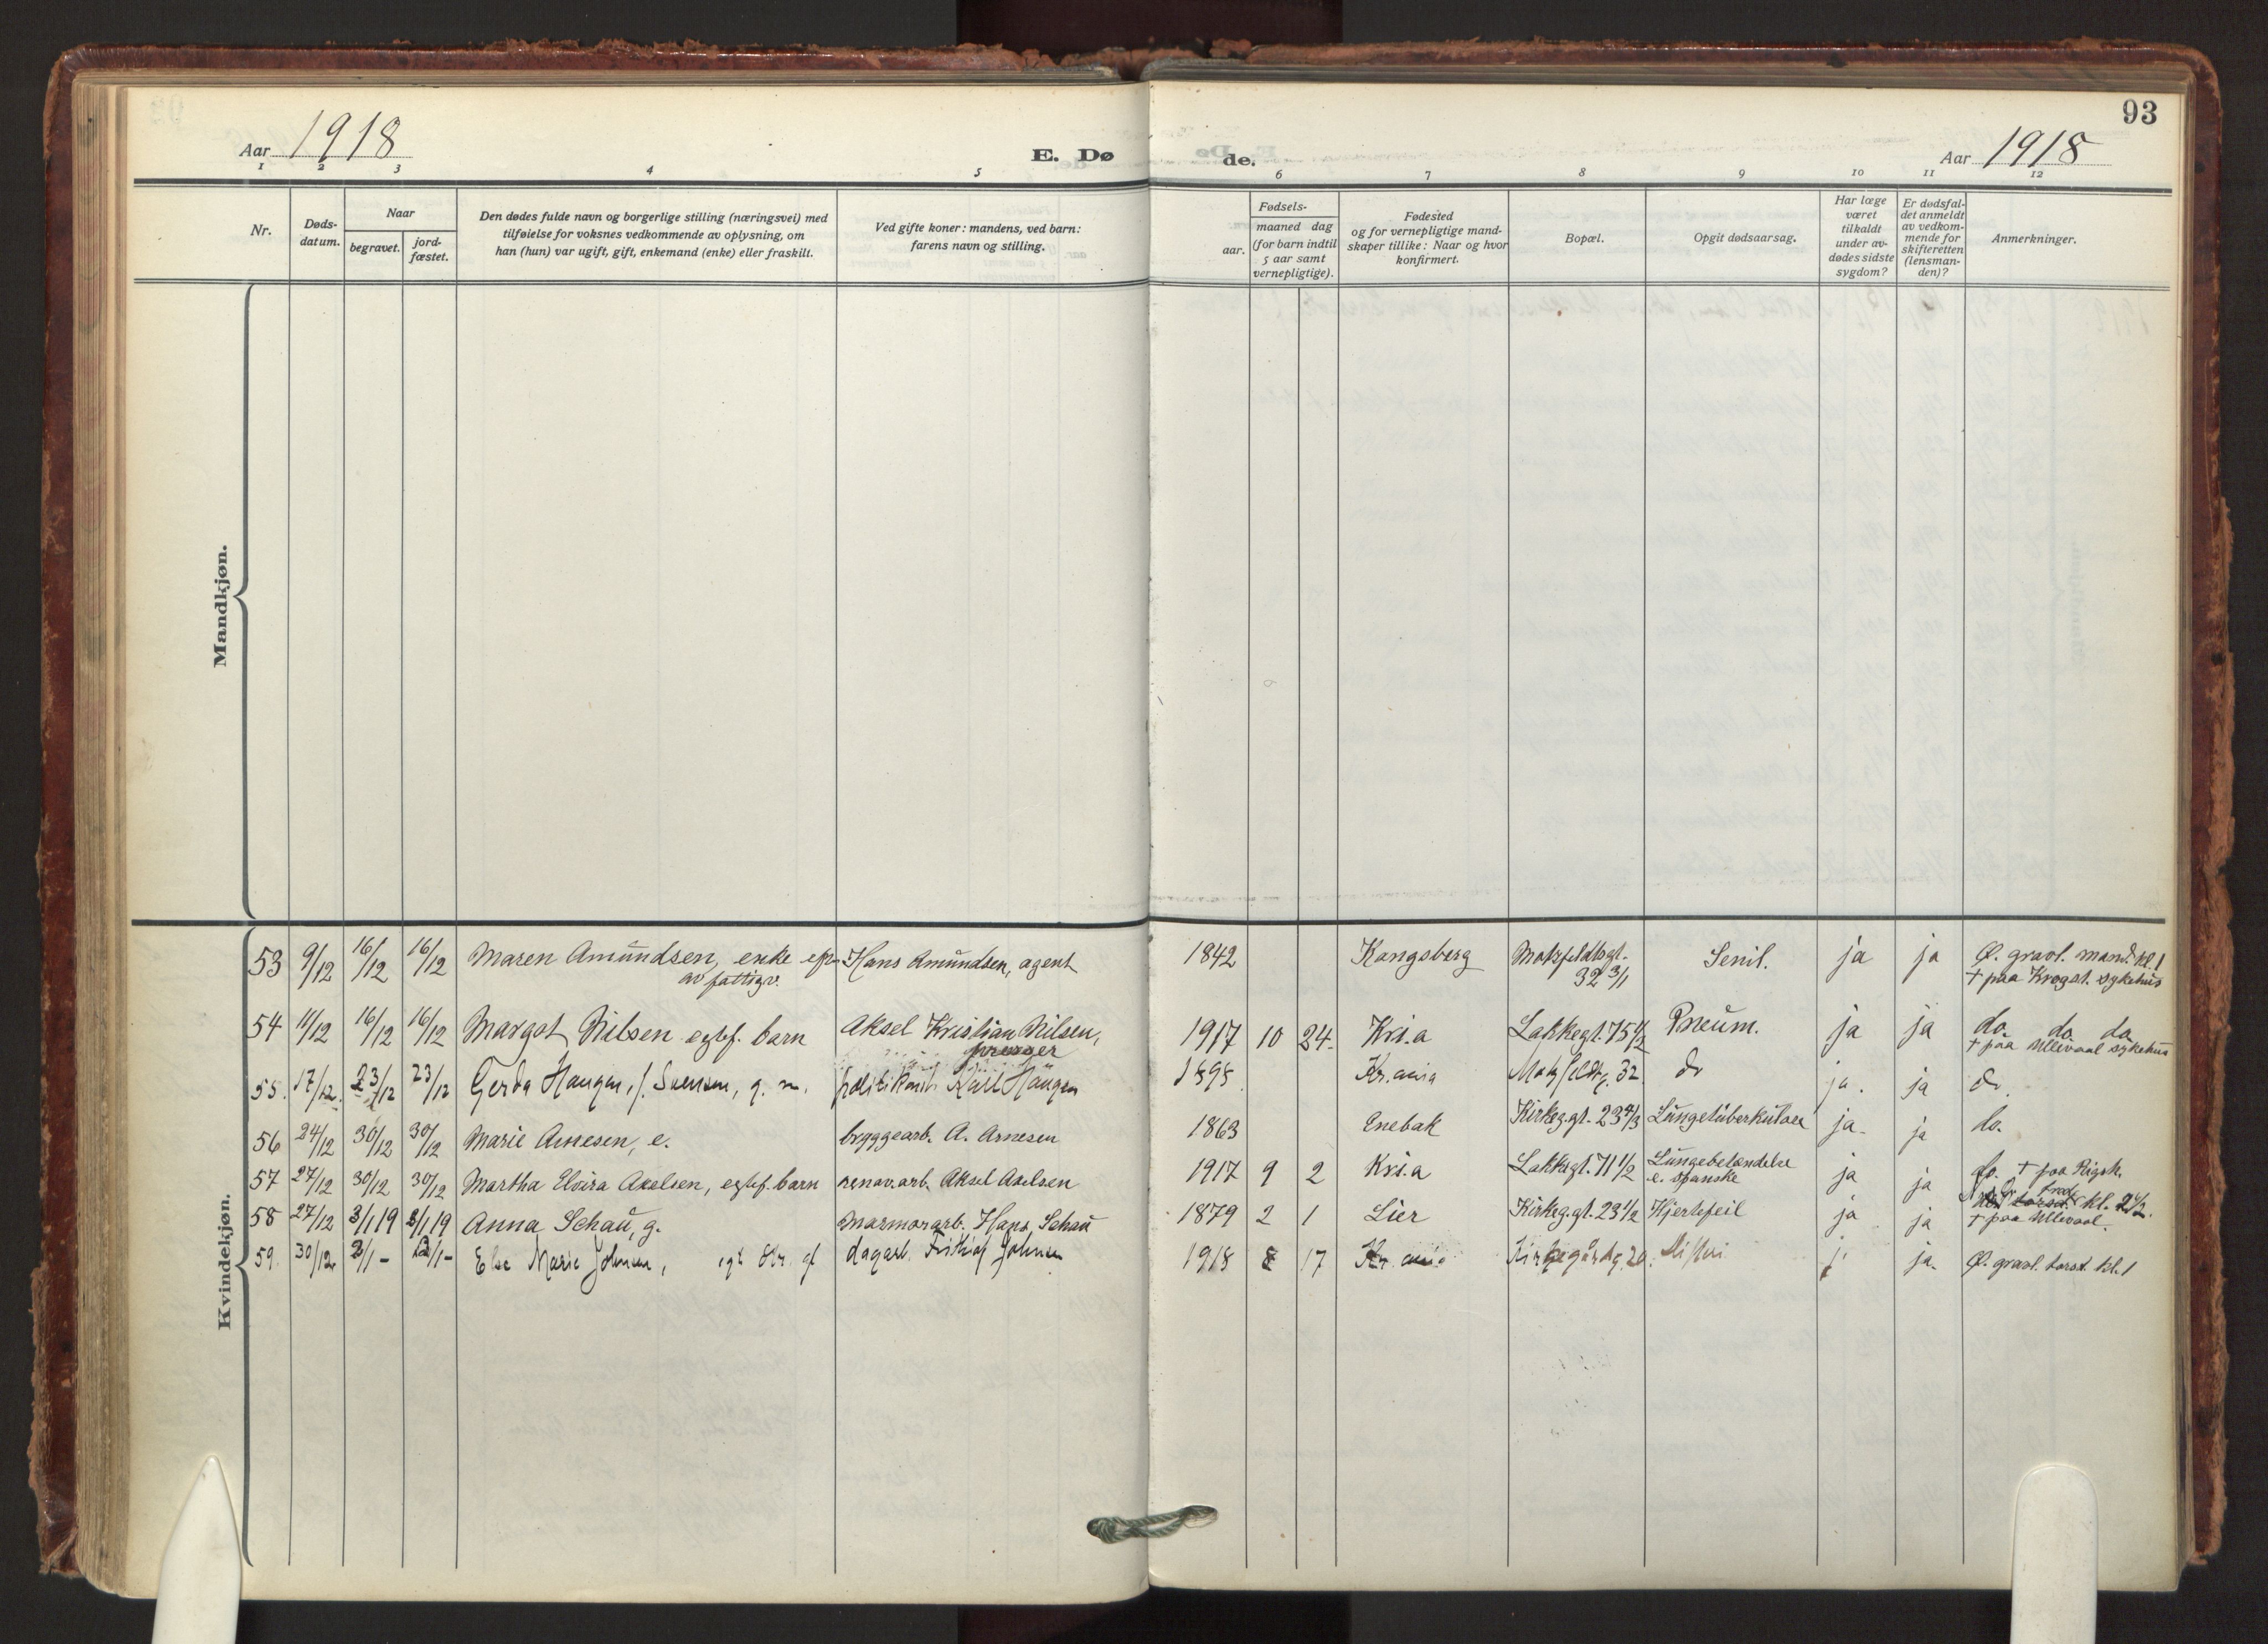 93
Aar 1918
E. Dø de.
Aar 1918
1 2 3 4 5 6 7 8 9 10 11 12
Nr.
Døds-
datum.
Naar
begravet.
jord-
fæstet.
Den dødes fulde navn og borgerlige stilling (næringsvei) med
tilføielse for voksnes vedkommende av oplysning, om
han (hun) var ugift, gift, enkemand (enke) eller fraskilt.
Ved gifte koner: mandens, ved barn:
farens navn og stilling.
Fødsels-
aar.
maaned dag
(for barn indtil
5 aar samt
vernepligtige).
Fødested
og for vernepligtige mand-
skaper tillike: Naar og hvor
konfirmert.
Bopæl.
Opgit dødsaarsag.
Har læge
været
tilkaldt
under av-
dødes sidste
sygdom?
Er dødsfal-
det anmeldt
av vedkom-
mende for
skifteretten
(lensman-
den)?
Anmerkninger.
Mandkjøn.
Kvindekjøn.
53 9/12 16/12 16/12 Maren Amundsen, enke ef. Hans Amundsen, agent 1842 Kongsberg Motzfeldtsgt. Senil. ja ja Ø. gravl. mand. kl. 1
av fattigv. 32 3/1 † paa Krogst. sykehus
54 11/12 16/12 16/12 Margot Nilsen egtef. barn Aksel Kristian Nilsen, 1917 10 24 Kri.a Lakkegt. 75 1/2 Pneum. ja ja do. do. do.
presser † paa Ullevaal sykehus
55. 17/12. 23/12 23/12 Gerda Haugen, f. Svensen, g. m. politikonst. Karl Haugen 1898 Kr.ania Motzfeldtg. 32 do ja. ja do.
56 24/12 30/12 30/12 Marie Arnesen, e. bryggearb. A. Arnesen 1863 Enebak Kirkeg.gt. 23 4/3 Lungetuberkulose ja. ja do.
57 27/12 30/12 30/12 Martha Elvira Axelsen, egtef. barn renov.arb. Aksel Axelsen 1917 9 2 Kri.a Lakkegt. 71 1/2 Lungebetendelse ja ja do. † paa Rigsh.
e. spanske
58 27/12 3/1 19 3/1 19 Anna Schau, g. marmorarb. Hans Schau 1879 2 1 Lier Kirkeg.gt. 23 1/2 Hjertefeil ja ja torsd. fred. kl. 2 1/2.
† paa Ullevaal.
59. 30/12. 2/1 - 2/1 - Else Marie Johnsen, dagarb. Frithjof Johnsen 1918 8 17 Kr.ania Kirkegårdsg. 20. ja. Ø. gravl. torsd. kl. 1